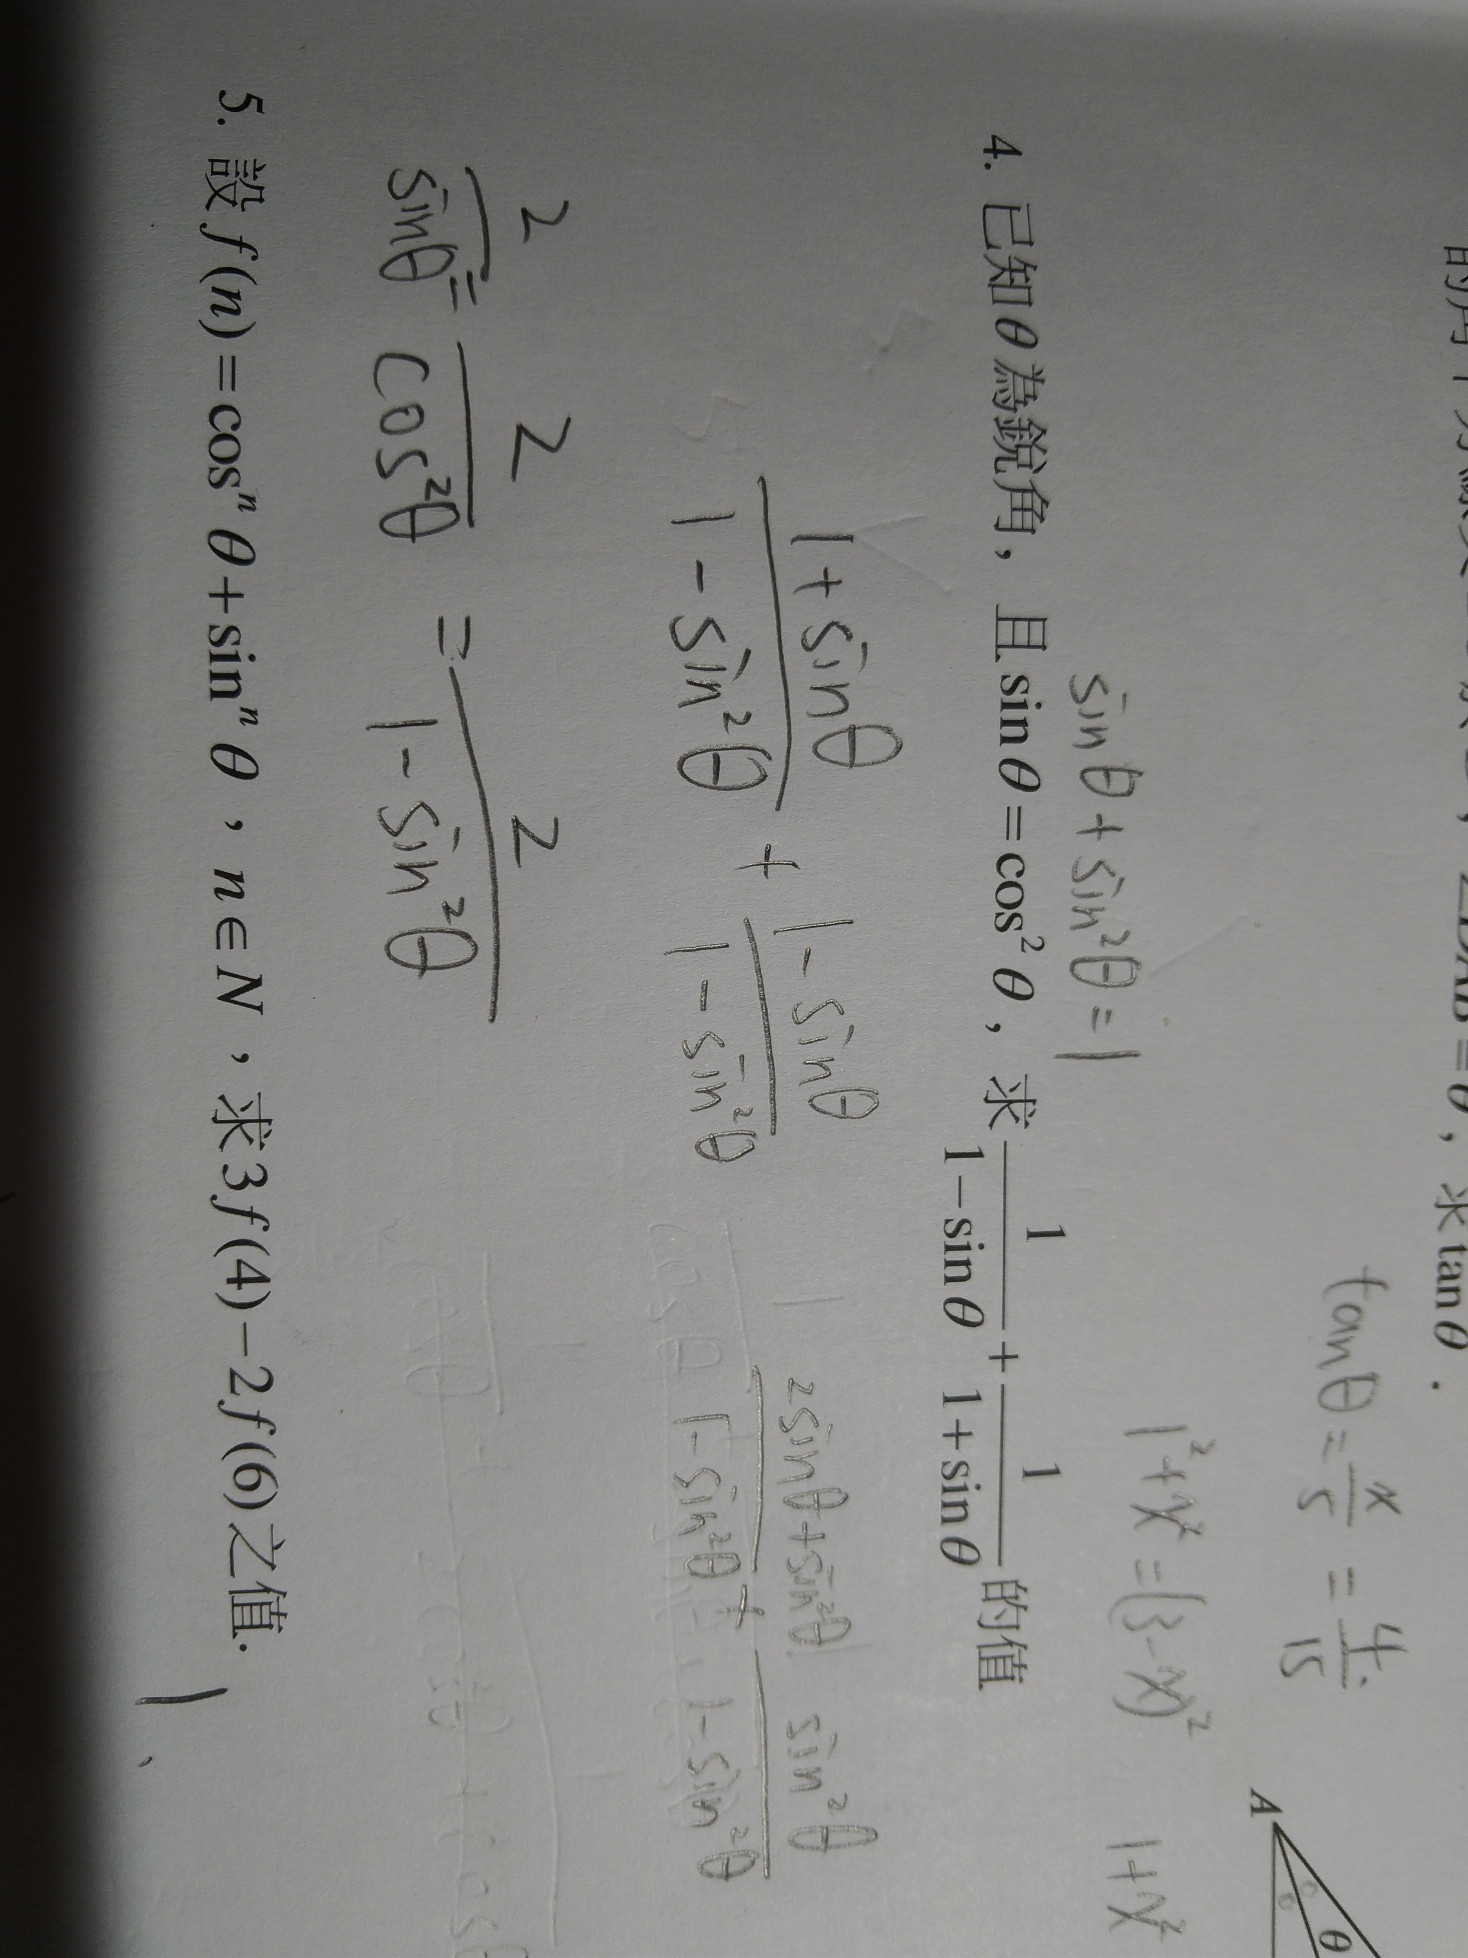 ∠DAB=θ，求tanθ．
tanθ = x/5 = 4/15
1²+x²=(3-x)²
1+x²
A
θ
sinθ+sin²θ=1
4. 已知θ為銳角，且sinθ=cos²θ，求 1/(1-sinθ) + 1/(1+sinθ) 的值
(1+sinθ)/(1-sin²θ) + (1-sinθ)/(1-sin²θ)
(2sinθ+sin²θ)/(1-sin²θ) + sin²θ/(1-sin²θ)
2/sinθ = 2/cos²θ = 2/(1-sin²θ)
5. 設f(n)=cosⁿθ+sinⁿθ，n∈N，求3f(4)-2f(6)之值.
1